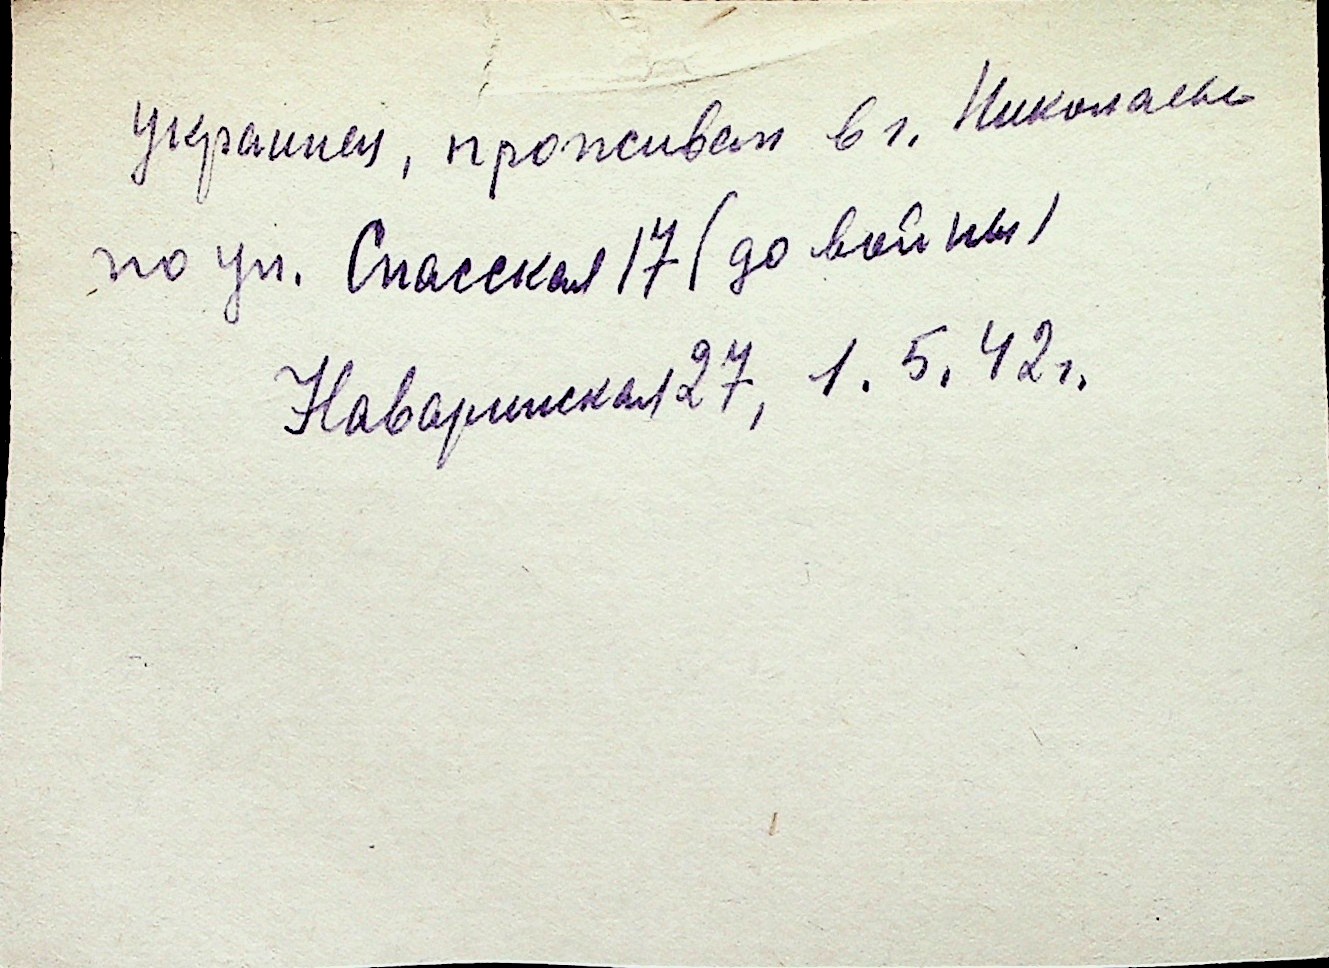 украинец, проживал в г. Николаеве
по ул. Спасская 17 (до войны)
Наваринская 27, 1. 5. 42 г.